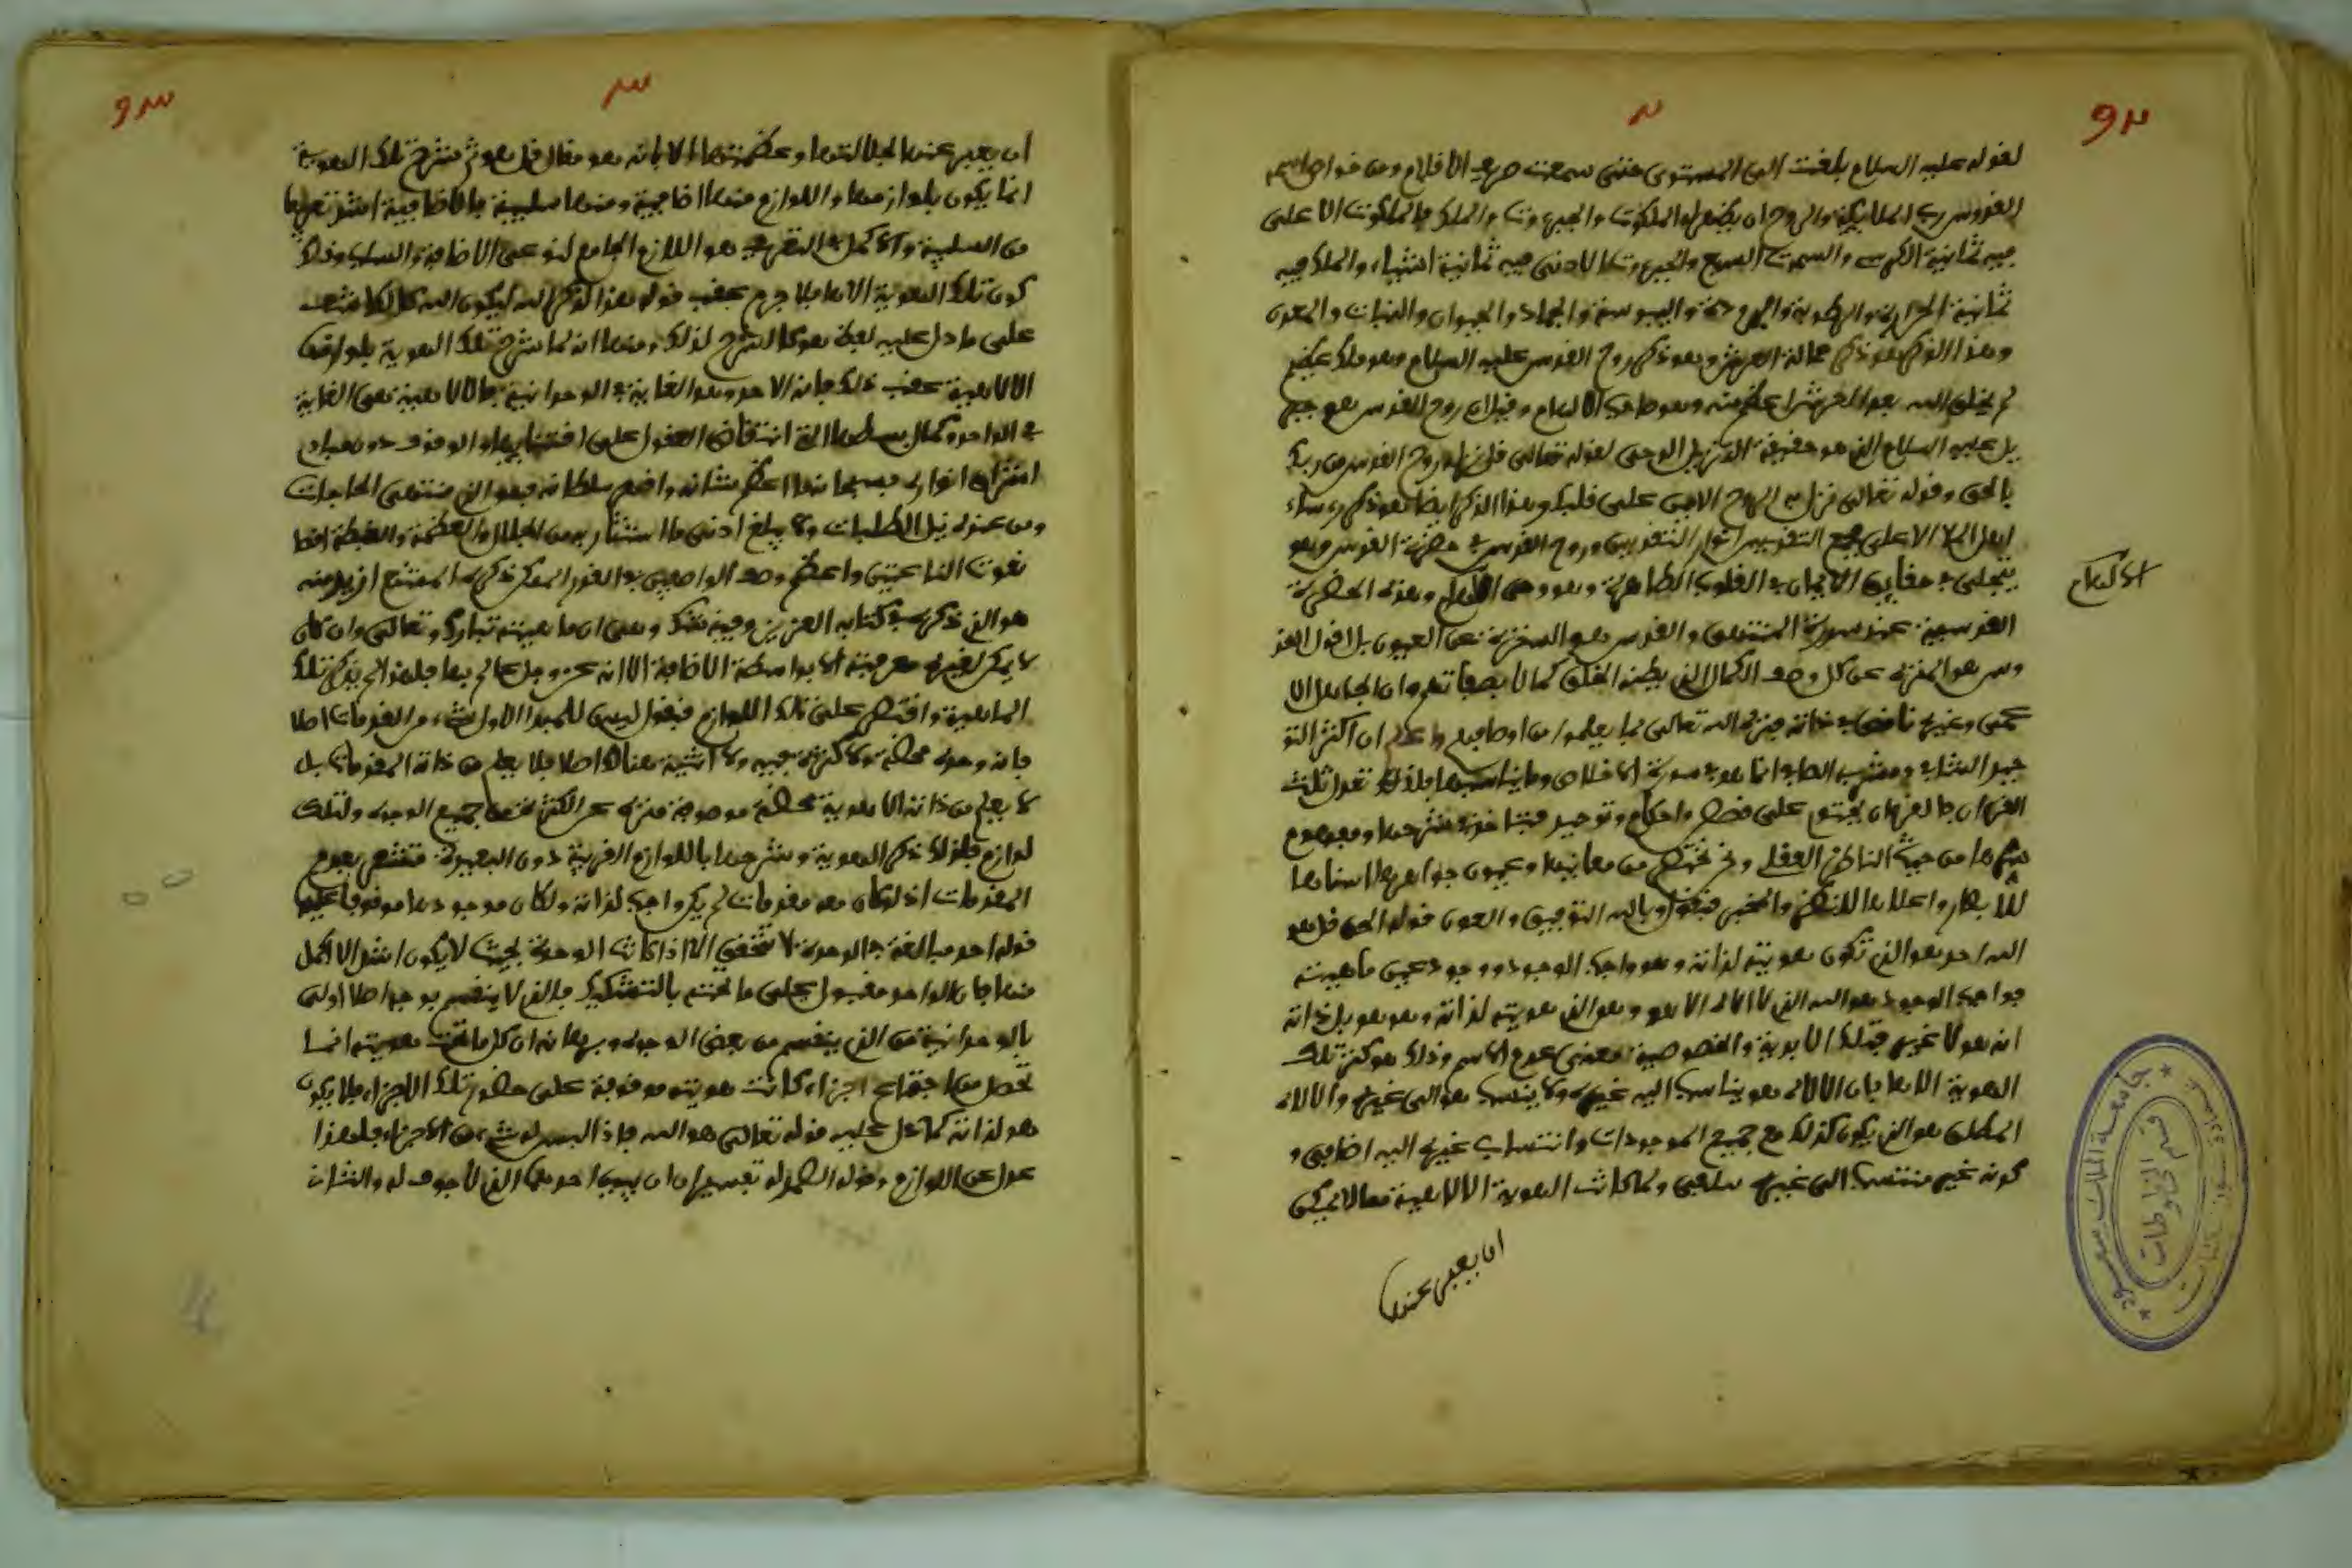 ٩٢
٢
لقوله عليه السلام بلغت الى المستوى حتى سمعت صريف الاقلام ومن خواص اسم
القدوس رب الملايكة والروح ان يظهر له الملكوت والجبروت والملك فالملكوت الاعلى
فيه ثمانية الكرسي والسموت السبع والجبروت الادنى فيه ثمانية اشياء والملك فيه
ثمانية الحرارة والرطوبة والبرودة واليبوسة والجماد والحيوان والنبات والمعدن
وهذا الذكر هو ذكر حملة العرش وهو ذكر روح القدس عليه السلام وهو ملك عظيم
لم يخلق الله بعد العرش اعظم منه وهو صاحب الالهام وقيل ان روح القدس هو جبر
يل عليه السلام الذي هو حقيقة التنزيل الوحي لقوله تعالى قل نزله روح القدس من ربك
بالحق وقوله تعالى نزل به الروح الامين على قلبك وهذا الذكر ايضا هو ذكر رءساء
اهل الملا الاعلى التقديس انوار المقربين وروح القدس في حضرة القدس وهو
يتجلى في حقايق الايمان في القلوب الطاهرة وهو وحي الالهام وهذه الحضرة
الالهام
القدسية عند سدرة المنتهى والقدس هو المنزه عن العيون بل اقول القد
وس هو المنزه عن كل وصف الكمال الذي يظنه الخلق كمالا بصفاتهم وان الجاهل الا
عمى وغيره ناقص في ذاته فينزه الله تعالى بما يعلموا من اوصافهم واعلم ان اكثر التو
حيد الشافي ومشرب الصافي انما هو في سورة الاخلاص وما يناسبها فلذلك تعدل ثلث
القرءان فالقرءان يحتوي على قصص واحكام وتوحيد فبنا شرحها ومفهوم
من حيث الناظر العقلي ونختصر من معانيها وعيون جواهرها اسناها
للابصار واعلاها للنظر والمخبر فنقول وبالله التوفيق والعون قوله الحق قل هو
الله احد هو الذي تكون هويته لذاته وهو واجب الوجود ووجوده عين ماهيته
فواجب الوجود هو الله الذي لا اله الا هو وهو الذي هويته لذاته وهو هو بل ذاته
انه هو لا غيره فتلك الابدية والخصوصية معنى عدم الاسم وذلك هو كنز تلك
الهوية الالهية فان الاله هو يناسب اليه غيره ولا ينسب هو الى غيره والاله
المطلق هو الذي يكون كذلك مع جميع الموجودات وانتساب غيره اليه اضافي و
كونه غير منتسب الى غيره سلبي ولما كانت الهوية الالهية مما لا يمكن
ان يعبر عنها
٩٣
٣
ان يعبر عنها لجلالتها وعظمتها الا بانه هو فقال قل هو ثم شرح تلك الهوية
انما يكون بلوازمها واللوازم منها اضافية ومنها سلبية فالاضافية اشد تعريفا
من السلبية والاكمل في التعريف هو اللازم الجامع لنوعي الاضافة والسلب وذلك
كون تلك الهوية الالها فلا جرم عقب قوله هو الذكر الله ليكون الله كالكاشف
على ما دل عليه لفظ هو كالشرح لذلك ومنها انه لما شرح تلك الهوية بلوازمها
الالاهية عقب ذلك فانه الاحد وهو الغاية في الوحدانية فالالاهية هي الغاية
في الواحد وكمال بساطتها انتقاض العقول على اكتناهها والوقوف دون مبادي
اشراق انواره فسبحانه ما اعظم شانه واقهر سلطانه فهو الذي منتهى الحاجات
ومن عنده نيل الطلبات ولا يبلغ ادنى ما استتار به من الجلال والعظمة والغبطة اقصا
نعوت الناعتين واعظم وصف الواصفين بل القدر الممكن ذكره الممتنع ازيد منه
هو الذي ذكره في كتابه العزيز وفيه شك وهي ان ماهيته تبارك وتعالى وان كان
لا يمكن لغيره معرفته الا بواسطة الاضافة الا انه عز وجل عالم بها فلهذا لم يذكر تلك
الماهية واقتصر على تلك اللوازم فيقول ليس للمبدا الاول شيء من المقومات اصلا
فانه وحده محضة ولا كثرة فيه ولا اثنينية هناك اصلا فلا يعلم من ذاته المقومات بل
لا يعلم من ذاته الا هوية محضة موصوفة منزه عن الكثرة من جميع الوجوه ولتلك
لوازم فلذلك ذكر الهوية وشرحها باللوازم القريبة دون البعيدة فتشعر بعدم
المقومات اذ لو كان معه مقومات لم يكن واجب لذاته ولكان موجودها موقوفا عليها
قوله احد مبالغة في الوحدة لا تتحقق الا اذا كانت الوحدة بحيث لا يكون اشد الاكمل
منها فان الواحد مقبول على ما تحته بالتشكيك فالذي لا ينقسم بوجه اصلا اولى
بالوحدانية من الذي ينقسم من بعض الوجوه وبرهانه ان كل ما تحت هويته انما
تحصل من اجتماع اجزاء كانت هويته موقوفة على حضور تلك الاجزاء فلا يكون
هو لذاته كما دل عليه قوله تعالى هو الله فاذا ليس له شيء من الاجزاء فلهذا
عدل عن اللوازم وقوله الصمد له تفسيران ان يبين احدهما الذي لا جوف له والثان
جامعة الملك سعود
قسم المخطوطات